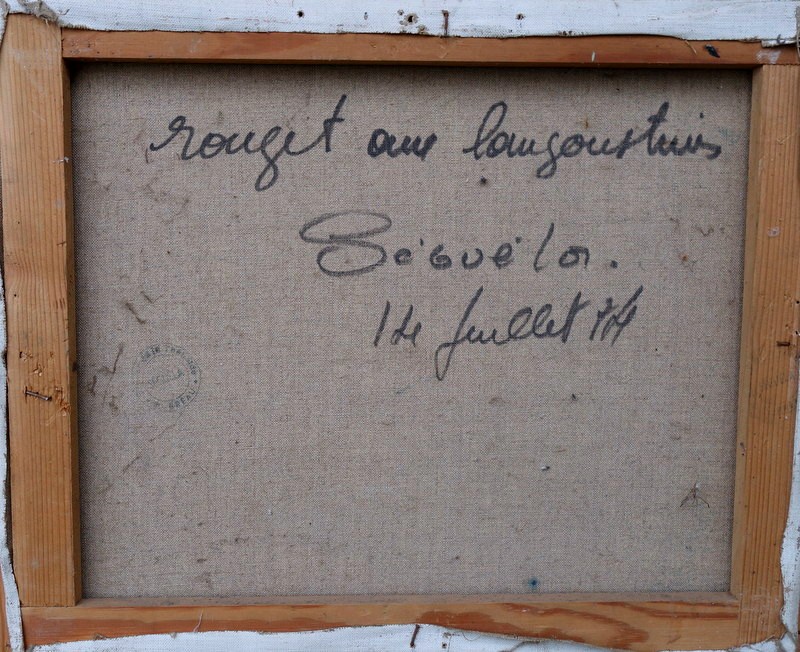 rouget aux langoustines
Séguéla.
14 Juillet 74